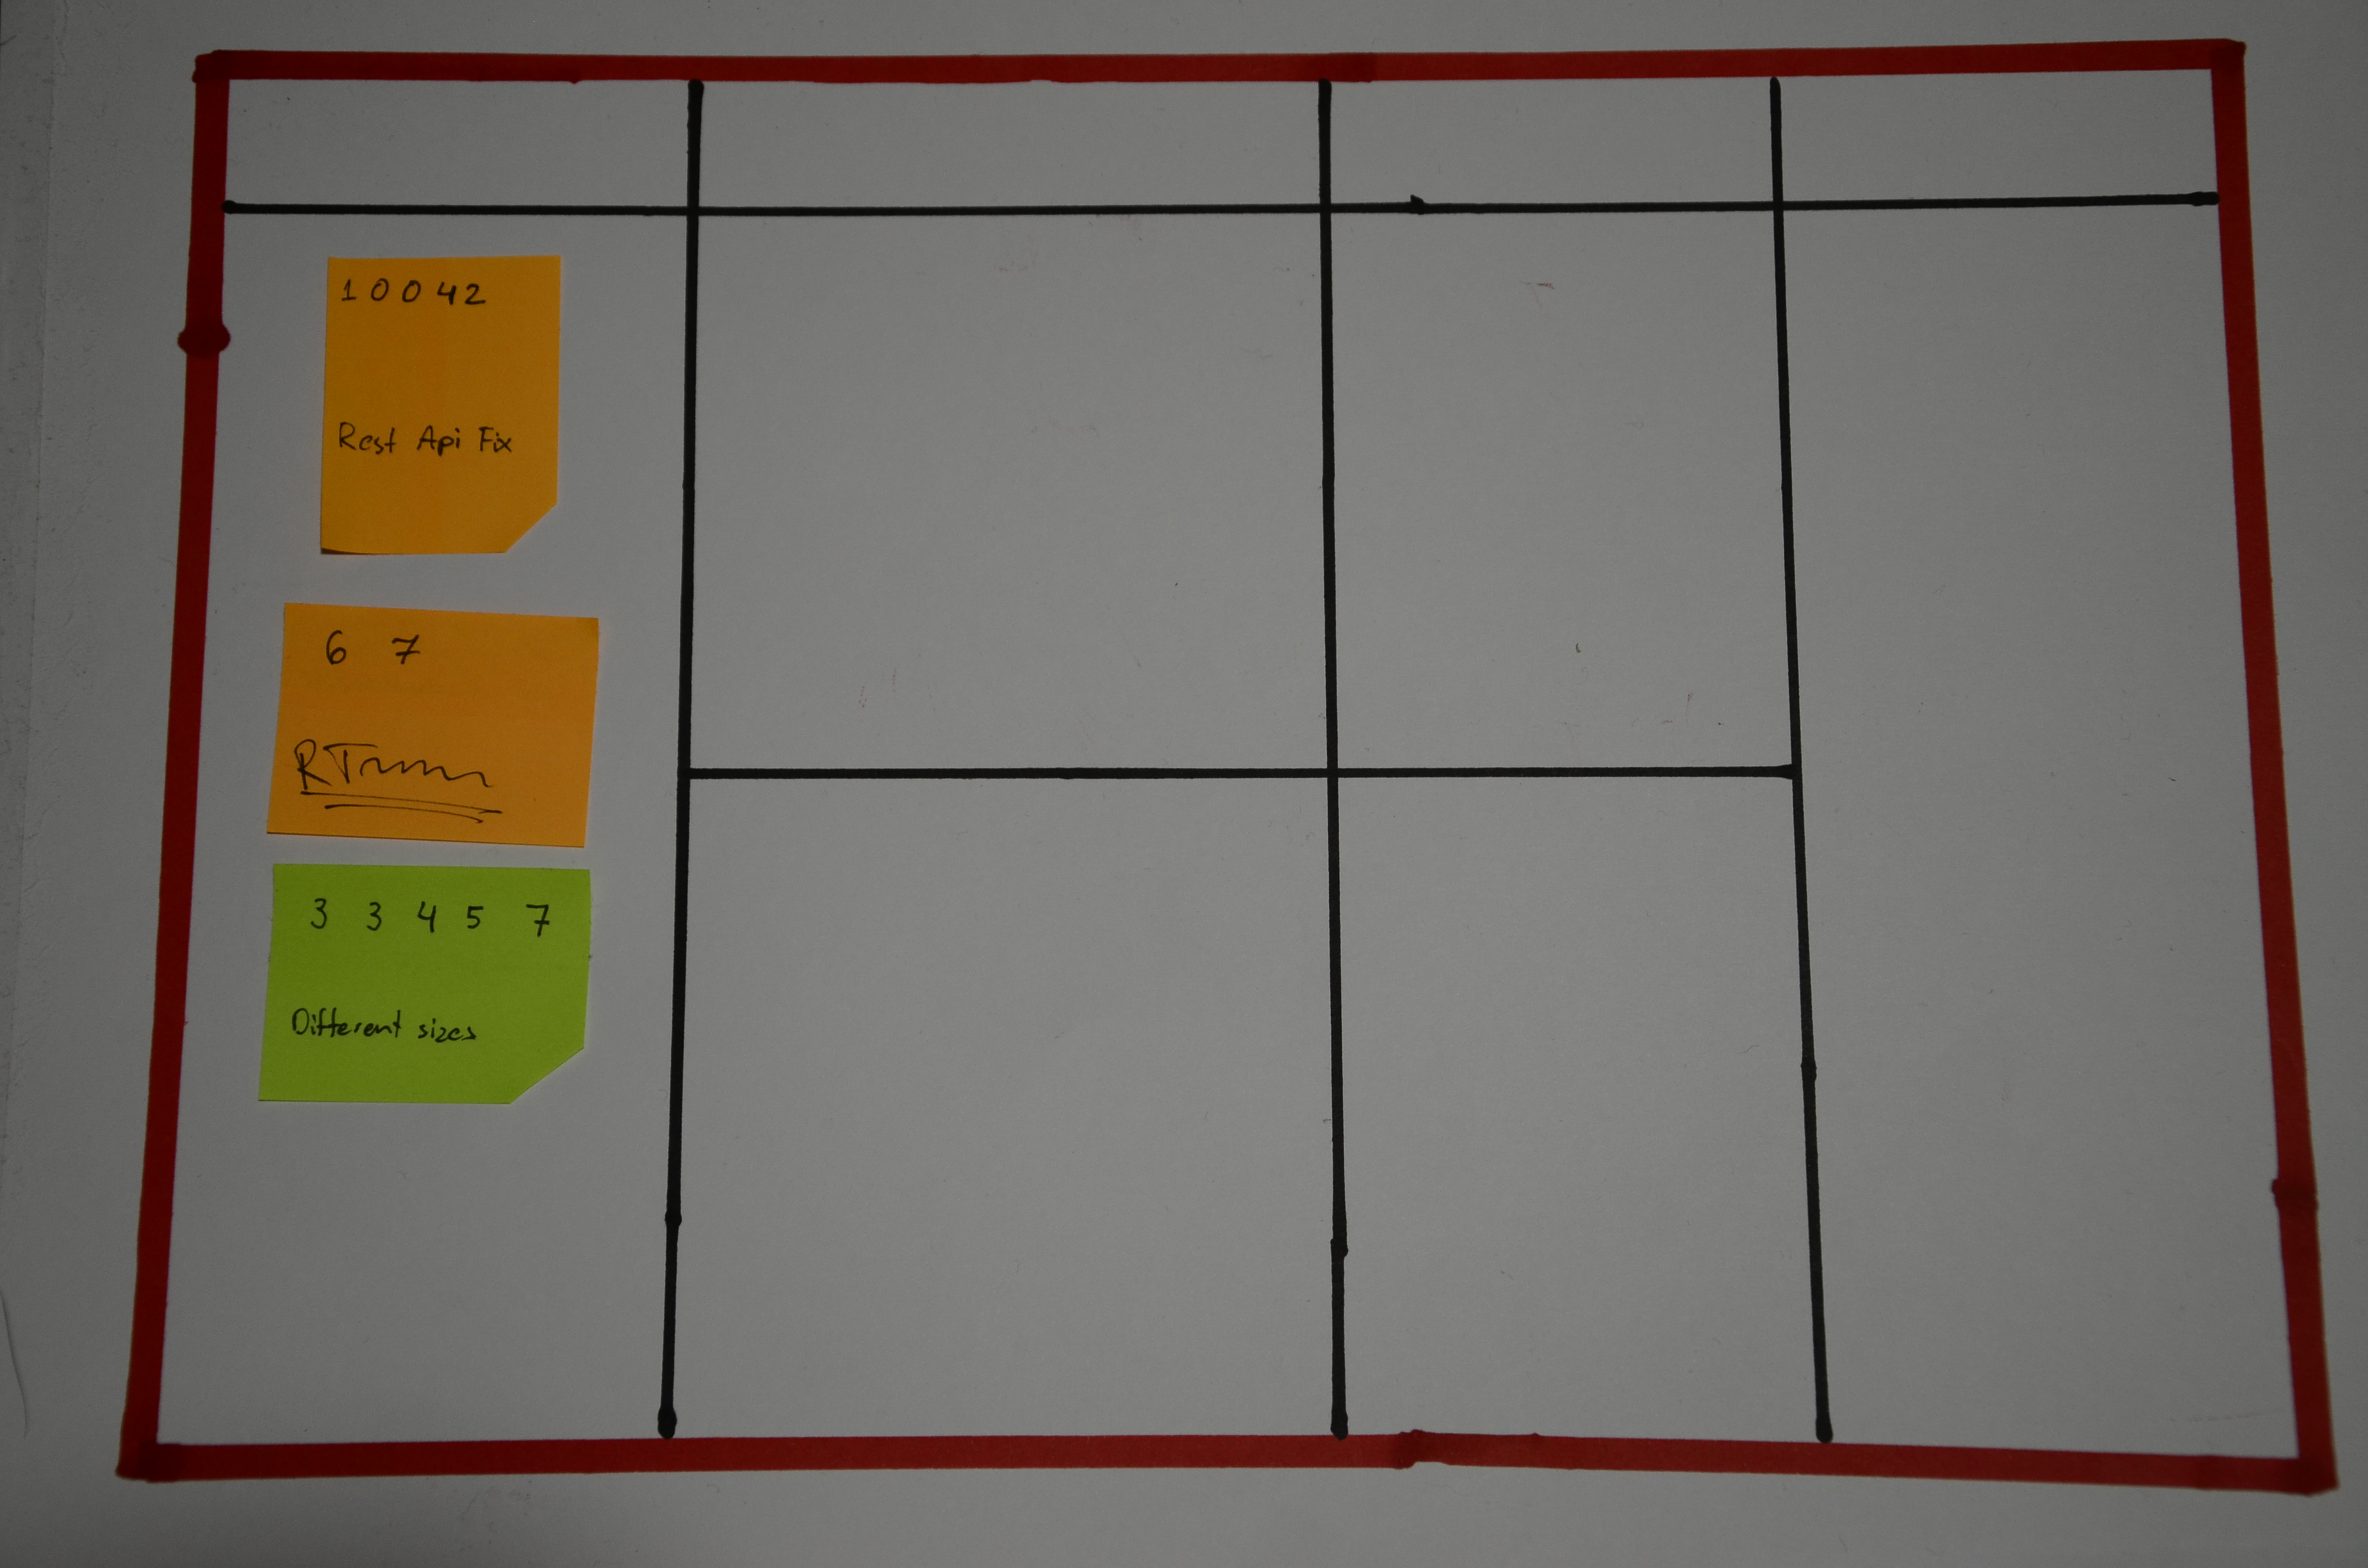 10042
Rest Api Fix
6 7
3 3 4 5 7
Different sizes